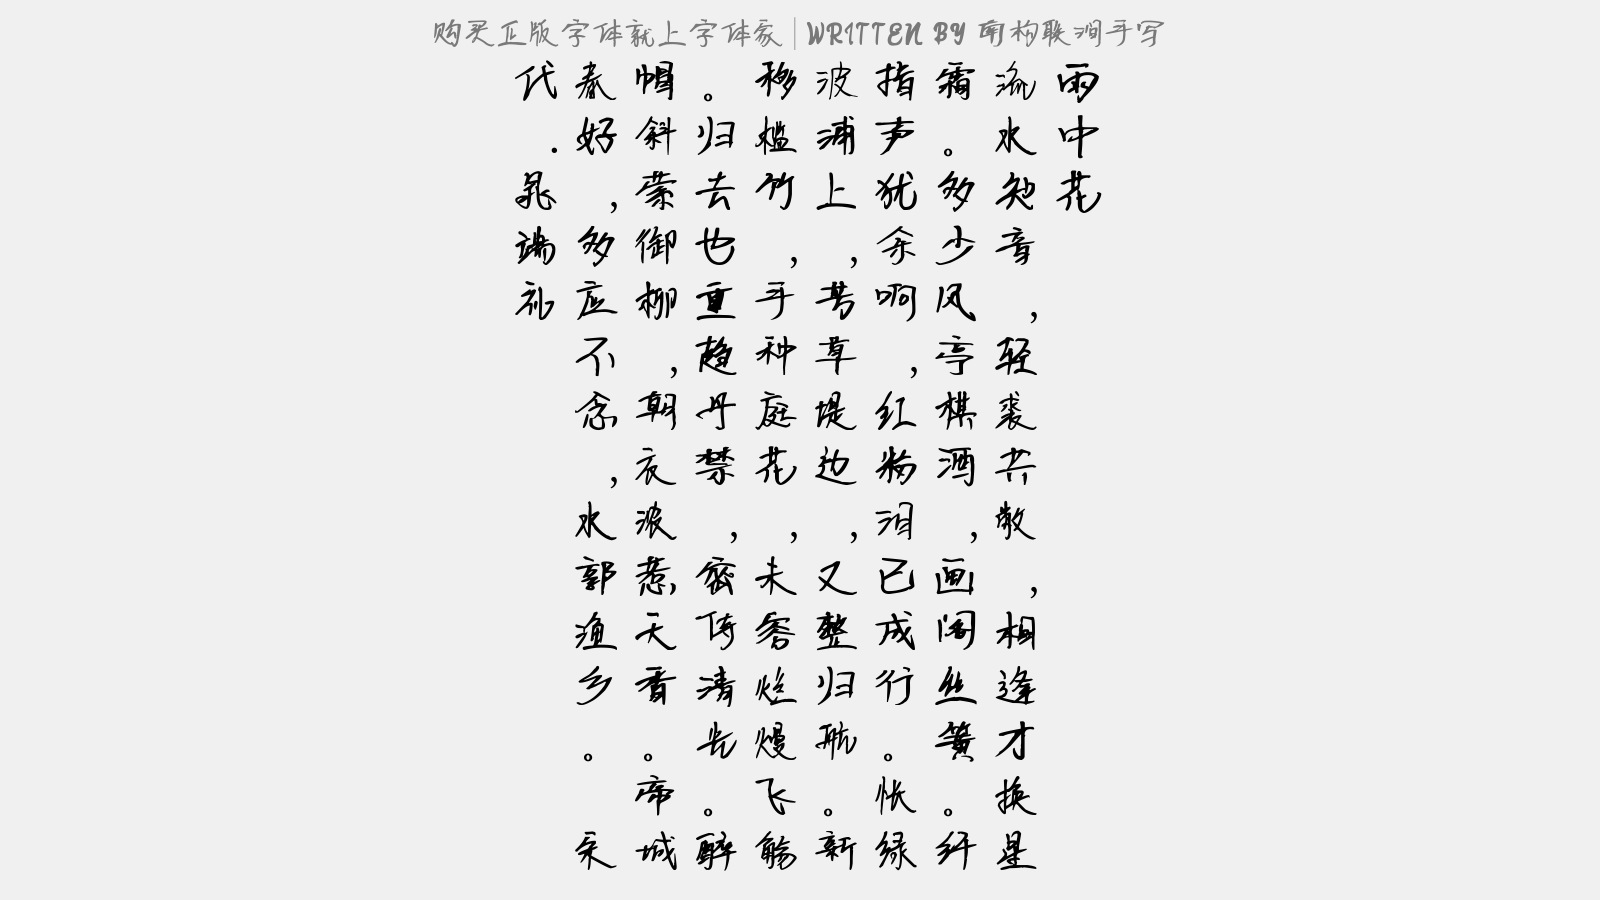 购买正版字体就上字体家|WRITTEN BY 南构联涧手写
雨中花
流水知音，轻裘共散，相逢才换星
霜。多少风亭棋酒，画阁丝簧。纤
指声犹余啊，红粉泪已成行。怅绿
波浦上，芳草堤边，又整归航。新
移槛竹，手种庭花，未容烂熳飞觞
。归去也重趋丹禁，密倚清光。醉
帽斜蒙御柳，朝衣浓惹天香。帝城
春好，多应不念，水郭渔乡。宋
代.晁端礼